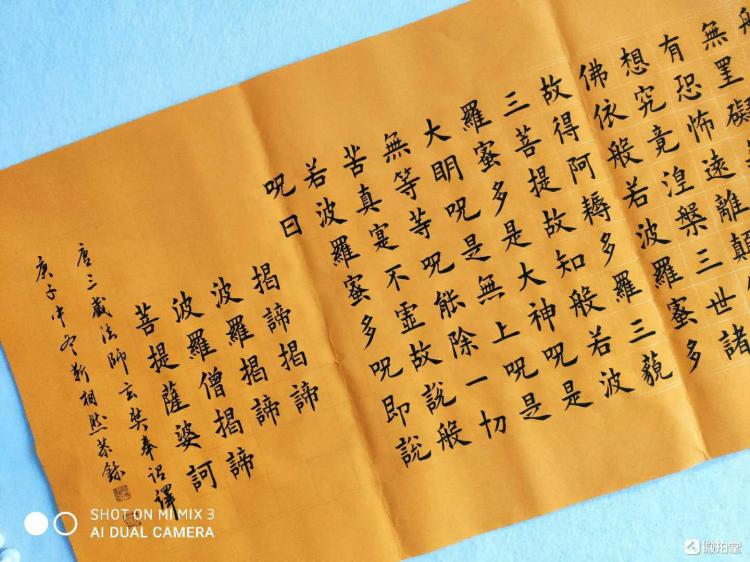 無罣礙
有恐怖遠離顛
想究竟涅槃三世諸
佛依般若波羅蜜多
故得阿耨多羅三藐
三菩提故知般若波
羅蜜多是大神呪是
大明呪是無上呪是
無等等呪能除一切
苦真寔不虛故說般
若波羅蜜多呪即說
呪曰
揭諦揭諦
波羅揭諦
波羅僧揭諦
菩提薩婆訶
唐三藏法師玄奘奉詔譯
庚子中冬靳相恭錄
SHOT ON MI MIX 3
AI DUAL CAMERA
微拍堂